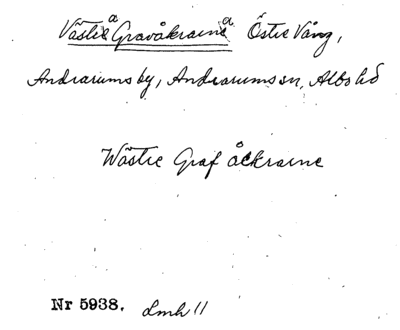 Västra Gravåkrarna Östre Vång,
Andrarums by, Andrarums sn, Albo hd
Wästre Graf åckrarne
Nr 5938. Lmh 11